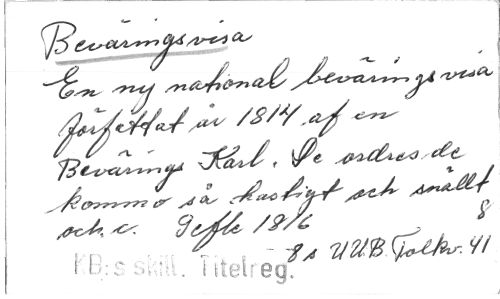 Beväringsvisa
En ny national bevärings visa
författat år 1814 af en
Bevärings Karl. Se ordres de
kommo så hastigt och snällt
och. c. Gefle 1816 8
8 s UUB Folkv. 41
KB:s skill. Titelreg.